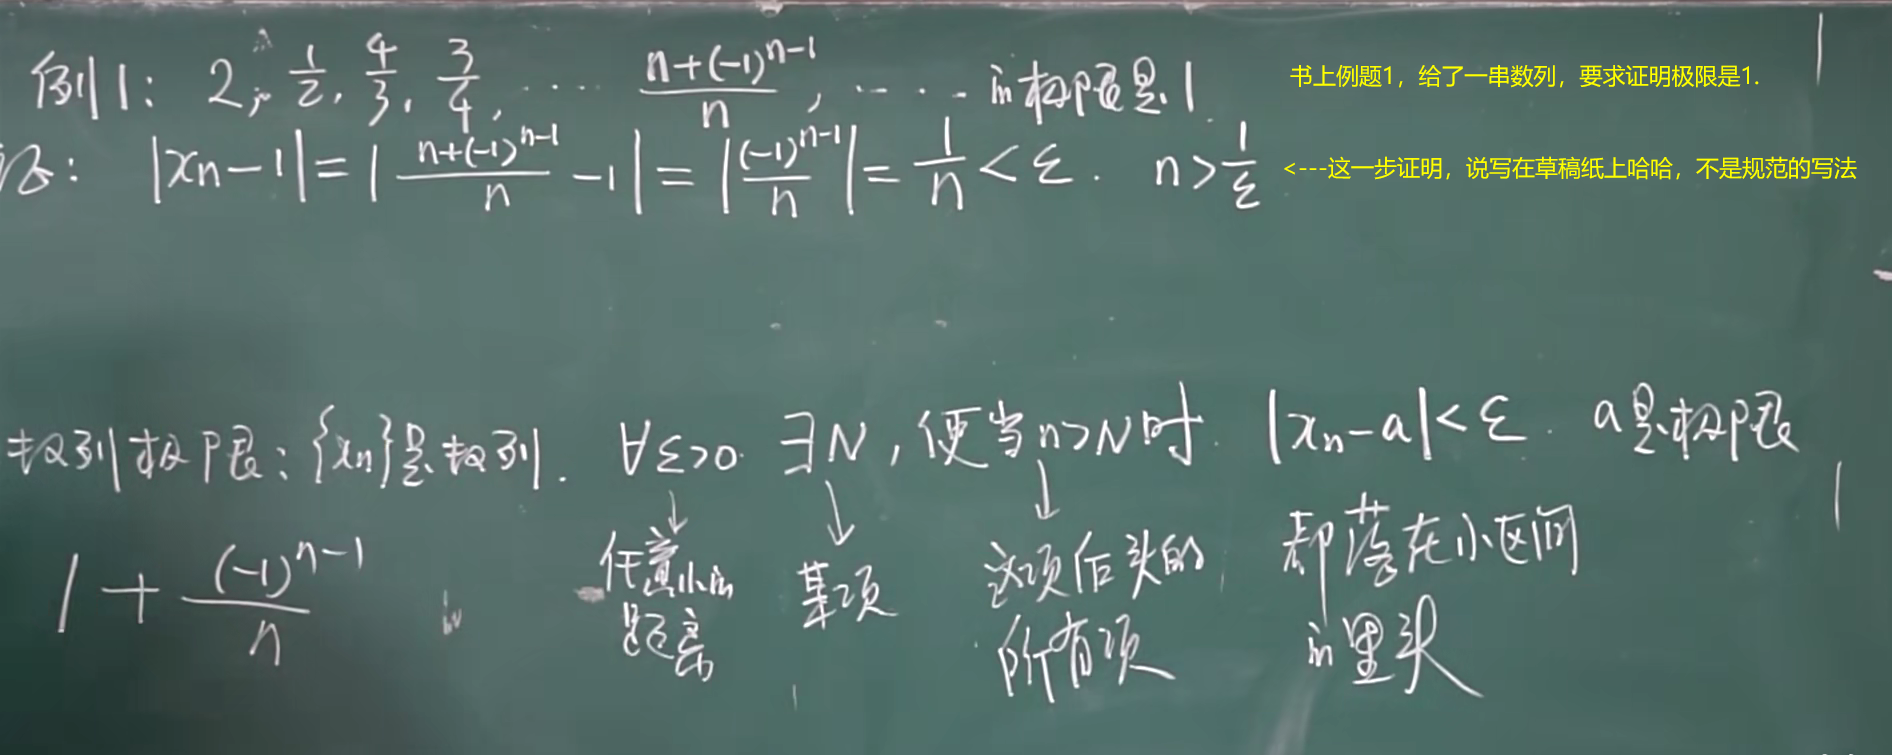 例1: 2, 1/2, 4/3, 3/4, ···· (n+(-1)^{n-1})/n, ···· 的极限是1
书上例题1，给了一串数列，要求证明极限是1.
证: |xn-1|=|(n+(-1)^{n-1})/n -1|=|(-1)^{n-1}/n|=1/n<ε. n>1/ε
<---这一步证明，说写在草稿纸上哈哈，不是规范的写法
数列极限: {xn}是数列. ∀ε>0 ∃N, 使当n>N时. |xn-a|<ε. a是极限
↓ ↓ ↓
1+(-1)^{n-1}/n
任意小的 某项 这项后头的 都落在小区间
距离 所有项 的里头